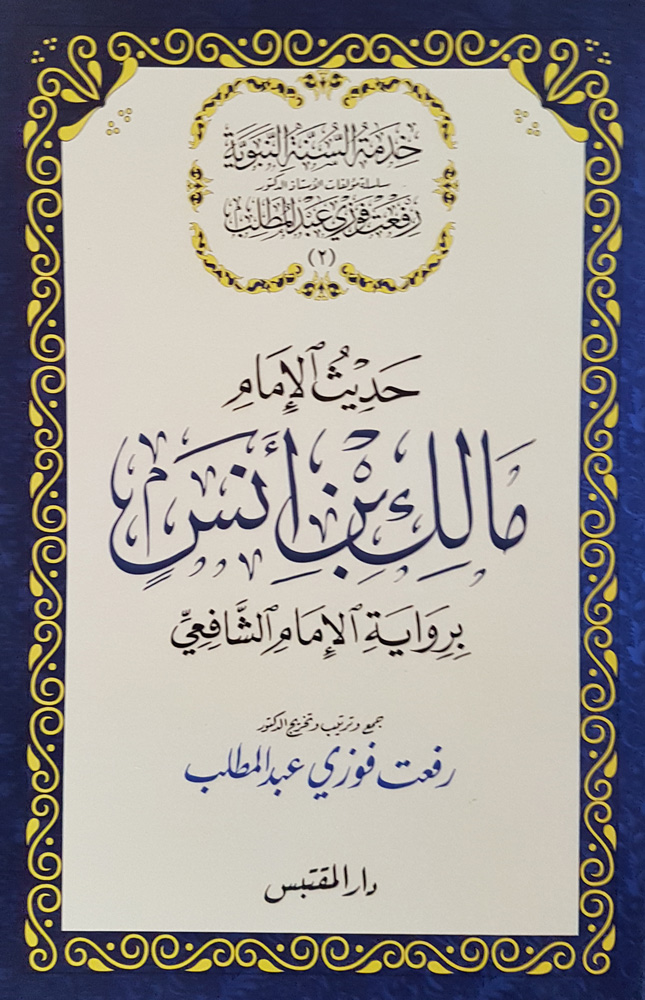 خِدْمَةُ السُّنَّةِ النَّبَوِيَّةِ
سلسلة مؤلفات الأستاذ الدكتور
رِفْعَت فَوْزِي عَبْدُ المُطَّلِب
(٢)
حَدِيْثُ الإِمَامِ
مَالِكِ بْنِ أَنَسٍ
بِرِوَايَةِ الإِمَامِ الشَّافِعِيِّ
جمع وترتيب وتخريج الدكتور
رفعت فوزي عبد المطلب
دار المقتبس